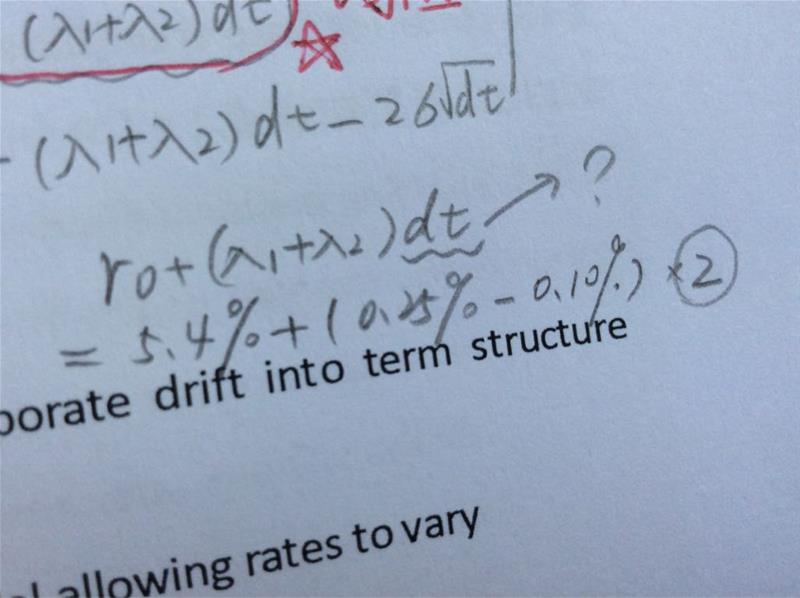 (λ1+λ2)dt
- (λ1+λ2)dt-2σ√dt
r0+(λ1+λ2)dt → ?
= 5.4%+(0.25%-0.10%)×2
porate drift into term structure
allowing rates to vary